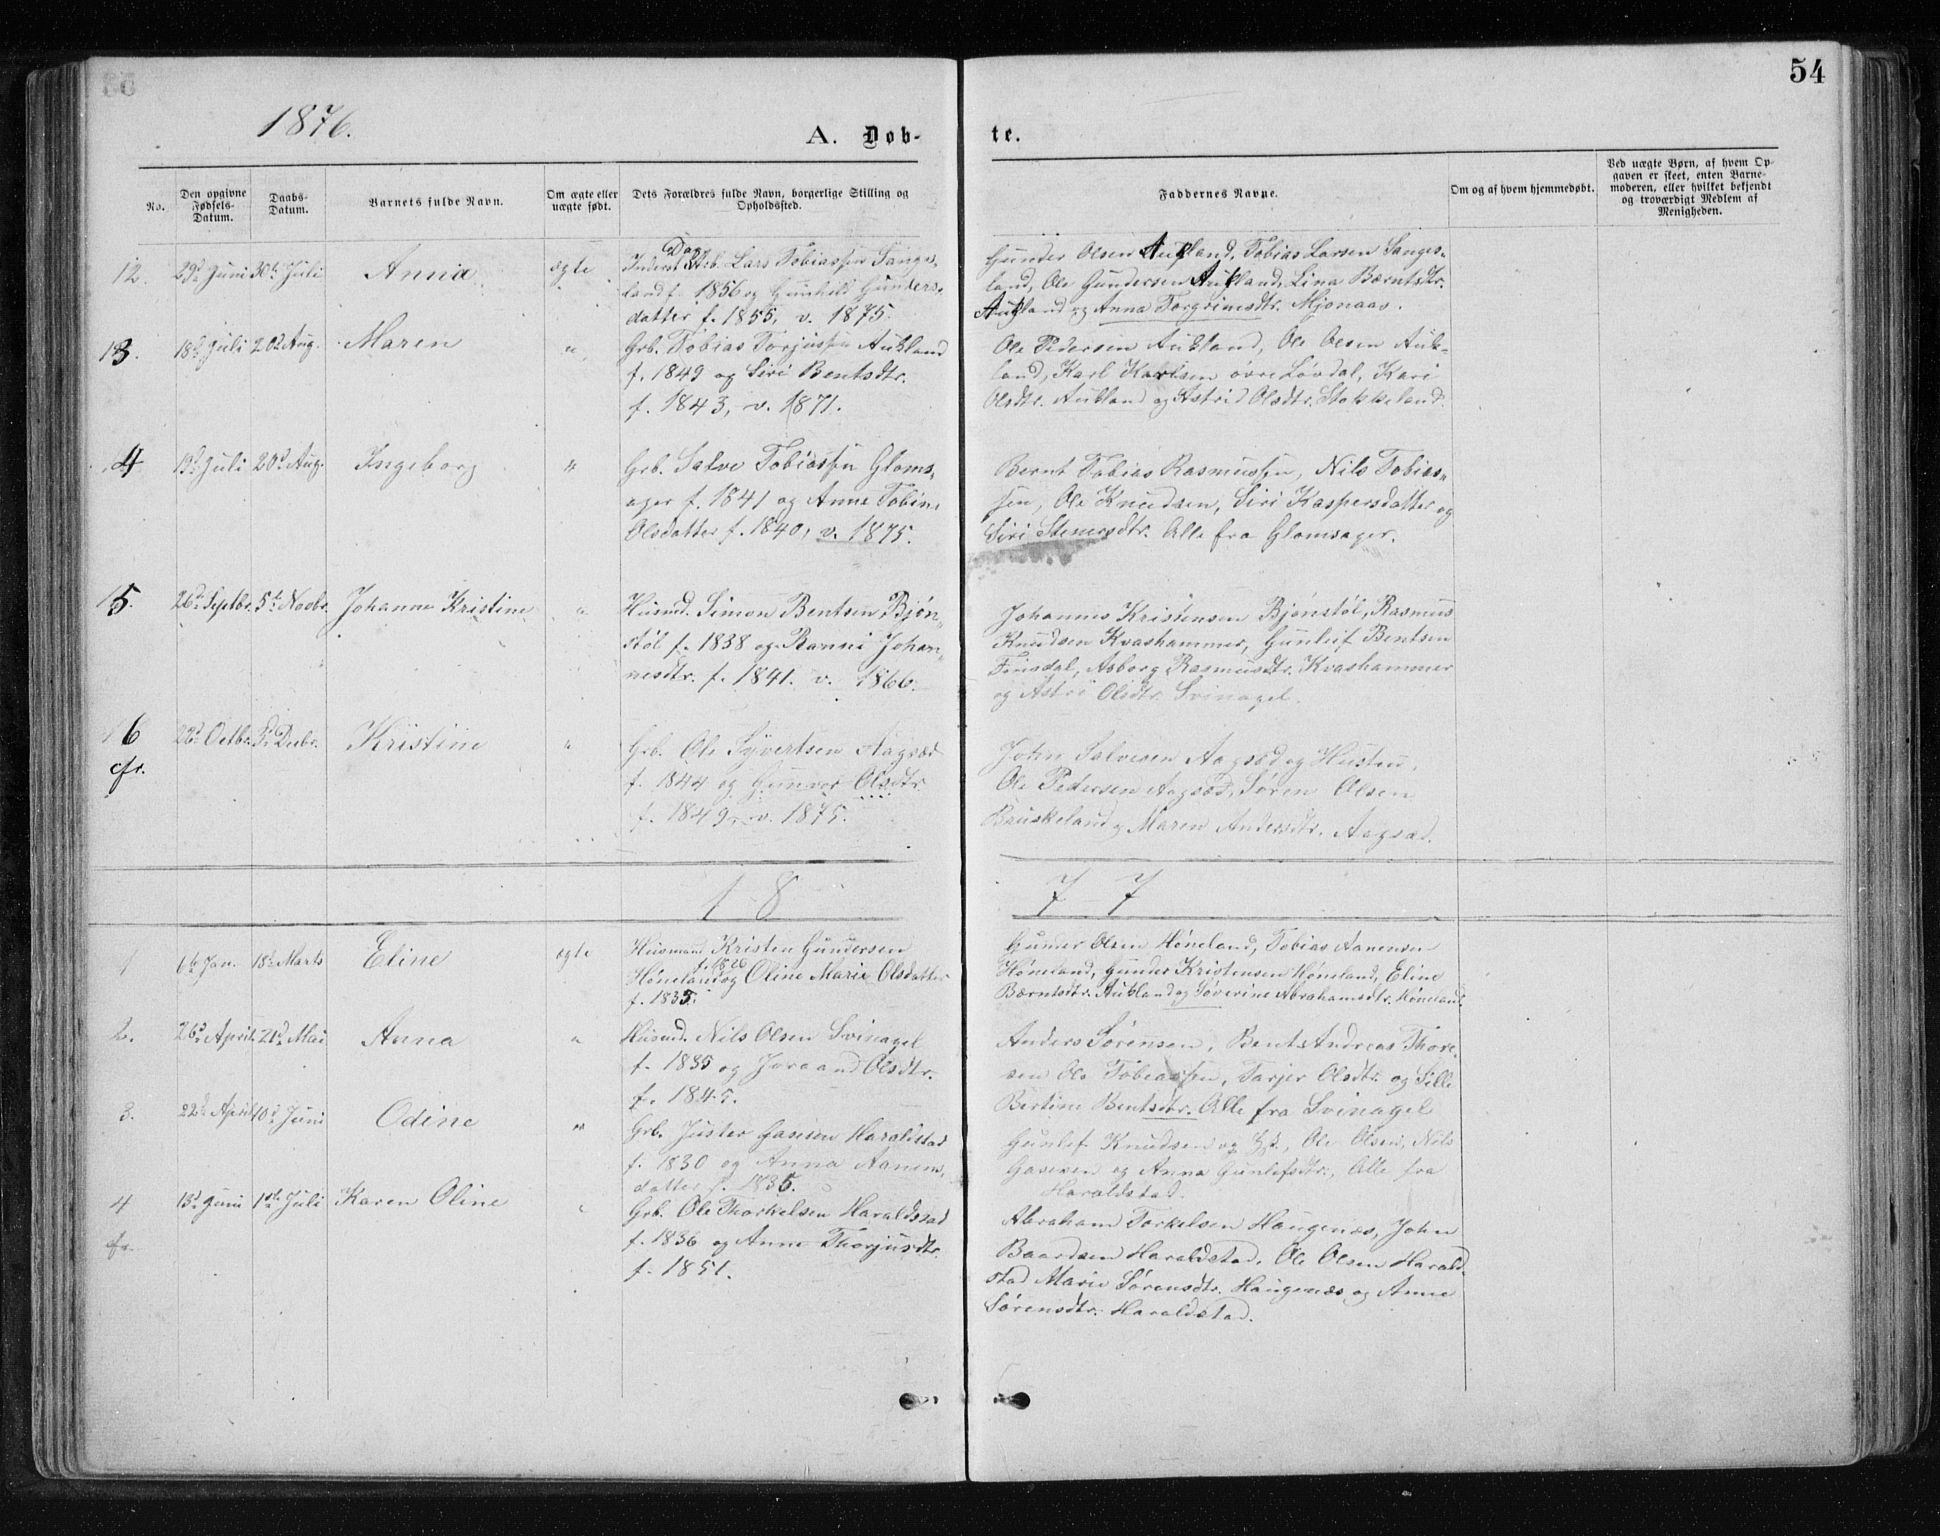 54
1876.
A. Døb-
te.
No.
Den opgivne
Fødsels-
Datum.
Daabs-
Datum.
Barnets fulde Navn.
Om ægte eller
uægte født.
Dets Forældres fulde Navn, borgerlige Stilling og
Opholdssted.
Faddernes Navne.
Om og af hvem hjemmedøbt.
Ved uægte Børn, af hvem Op-
gaven er skeet, enten Barne-
moderen, eller hvilket bekjendt
og troværdigt Medlem af
Menigheden.
12. 29d Juni 30te Juli Annia ægte
Lars Tobiassen Sanges-
land f. 1856 og Gunhild Gunders-
datter f. 1855, v. 1875.
Gunder Olsen Aukland, Tobias Larsen Sanges-
land, Ole Gundersen Aukland, Lina Bærntsdtr.
Aukland og Anna Torgrimsdtr. Mjonaas.
13. 18de Juli 20d Aug. Maren "
Grb. Tobias Torjussen Aukland
f. 1849 og Siri Bentsdtr.
f. 1843, v. 1871.
Ole Pedersen Aukland, Ole Olsen Auk-
land, Karl Karlsen øvre Løvdal, Kari
Olsdtr. Aukland og Astrid Olsdtr. Stokkeland.
14 19d Juli 20d Aug. Ingeborg "
Grb. Salve Tobiassen Gloms-
ager f. 1841 og Anne Tobine
Olsdatter f. 1840, v. 1875.
Bernt Tobias Rasmussen, Nils Tobias-
sen, Ole Knudsen, Siri Kaspersdatter og
Siri Stenersdtr. Alle fra Glomsager.
15. 26d Septbr. 5te Novbr. Johanne Kristine "
Husmd. Simon Bentsen Bjøn-
støl f. 1838 og Ranni Johan-
nesdtr. f. 1841. v. 1866.
Johannes Kristensen Bjønstøl, Rasmus
Knudsen Kvashammer, Gunleif Bentsen
Asborg Rasmusdtr. Kvashammer
og Astri Olsdtr. Svinagel.
16 22d Octbr. 3d Decbr. Kristine "
cfr.
Grb. Ole Syvertsen Aagsæd
f. 1844 og Gunvor Olsdtr.
f. 1849, v. 1875.
John Salvesen Aagsæd og Hustru,
Ole Pedersen Aagsæd, Søren Olsen
Bruskeland og Maren Andersdtr. Aagsæd.
18
7 7
1 6te Jan. 18de Marts Eline ægte
Husmand Kristen Gundersen
f. 1826
Høneland og Oline Marie Olsdatter
f. 1835.
Gunder Olsen Høneland, Tobias Aanensen
Høneland, Gunder Kristensen Høneland, Eline
Bærntsdtr. Aukland og Søverine Abrahamsdtr. Høneland.
2. 26d April 21d Mai Anna "
Husmd. Nils Olsen Svinagel
f. 1835 og Joraand Olsdtr.
f. 1845.
Anders Sørensen, Bent Andreas Thore-
sen Ole Tobiassen, Tarjer Olsdtr. og Sille
Bertine Bentsdtr. Alle fra Svinagel
3. 22de April 10d Juni Odine "
Grb. Juster Gausen Haraldstad
f. 1830 og Anna Aanens-
datter f. 1835.
Gunlef Knudsen og Ole Olsen, Nils
og Anna Gunlefsdtr., Alle fra
Haraldstad.
4 13d Juni 1ste Juli Karen Oline "
cfr.
Grb. Ole Thorkelsen Haraldstad
f. 1836 og Anne Thorjusdtr.
f. 1851.
Abraham Torkelsen Haugenæs, John
Baardsen Haraldstad, Ole Olsen Harald-
stad Marie Sørensdtr. Haugenæs og Anne
Sørensdtr. Haraldstad.